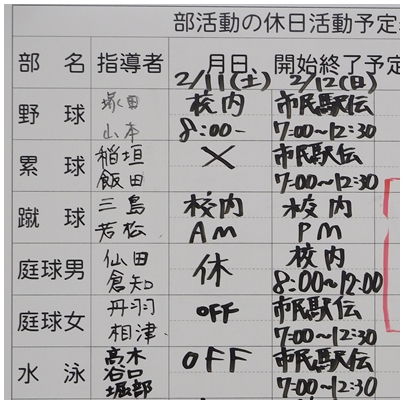 部活動の休日活動予定
部 名 指導者 月日 開始終了予定
2/11(土) 2/12(日)
野 球 塚田 校内 市民駅伝
山本 8:00- 7:00~12:30
累 球 稲垣 × 市民駅伝
飯田 7:00~12:30
蹴 球 三島 校内 校内
若松 AM PM
庭球男 仙田 休 校内
倉知 8:00~12:00
庭球女 丹羽 OFF 市民駅伝
相津 7:00~12:30
水 泳 高木 OFF 市民駅伝
谷口
堀部 7:00~12:30